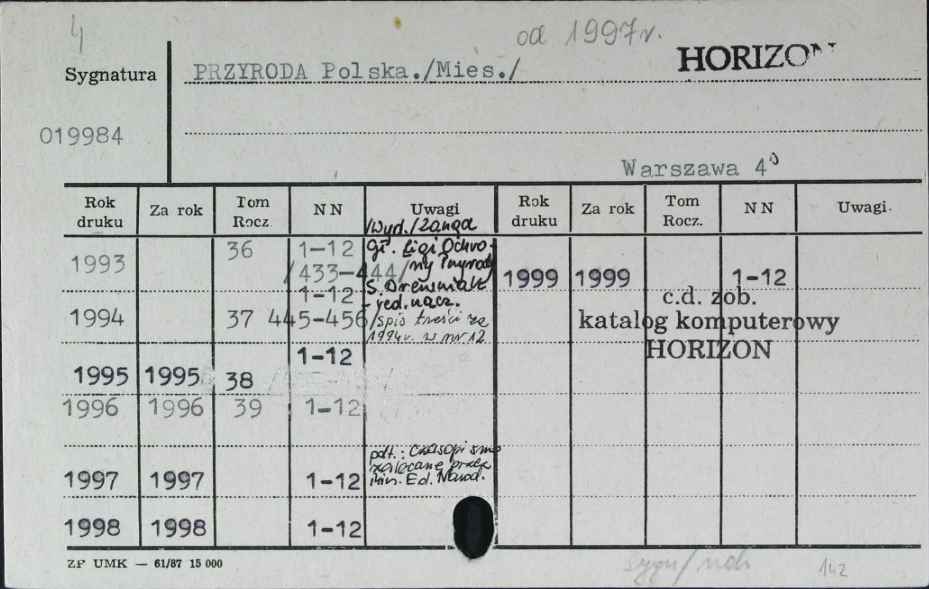 4
od 1997r.
HORIZON
Sygnatura
PRZYRODA Polska./Mies./
019984
Warszawa 4°
Rok druku Za rok Tom Rocz. NN Uwagi Rok druku Za rok Tom Rocz. NN Uwagi.
/Wyd./Zarząd
1993 36 1-12 gł. Ligi Ochro-
/433-444/ny Przyrody
S. Drewniak
- red. nacz.
1999 1999 1-12
1994 37 1-12
445-456/spis treści za
1994r. w nr 12
c.d. zob.
katalog komputerowy
HORIZON
1995 1995 38 1-12
1996 1996 39 1-12
1997 1997 1-12 pdt.: Czasopismo
zalecane przez
Min. Ed. Narod.
1998 1998 1-12
ZP UMK — 61/87 15 000
142